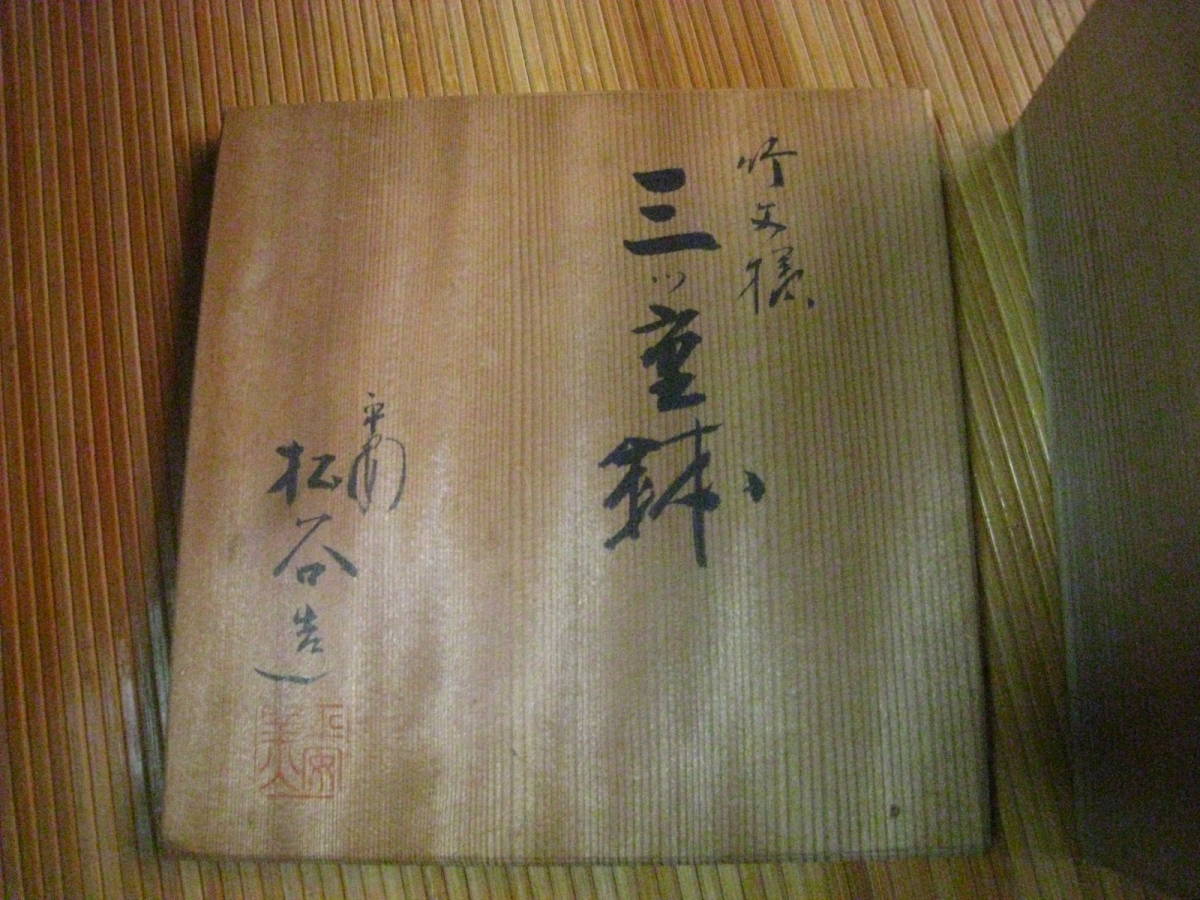 竹文様
三ツ重鉢
平安
松谷造